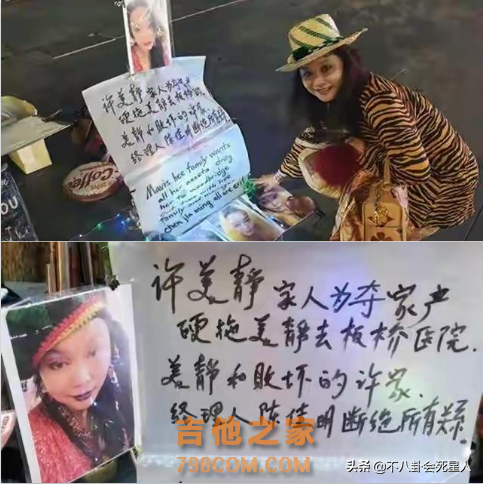 许美静家人为夺家产
硬拖美静去板桥医院
美静和败坏的许家
经理人陈佳明断绝所有
Mavis hee family wants
all her assets drag
her to woodbridge
family
chen jia ming all
Coffee
YOU
许美静 家人为夺家产
硬拖美静去板桥医院.
美静和败坏的许家.
经理人陈佳明断绝所有关系.
吉他之家
798COM.COM
头条 @不八卦会死星人